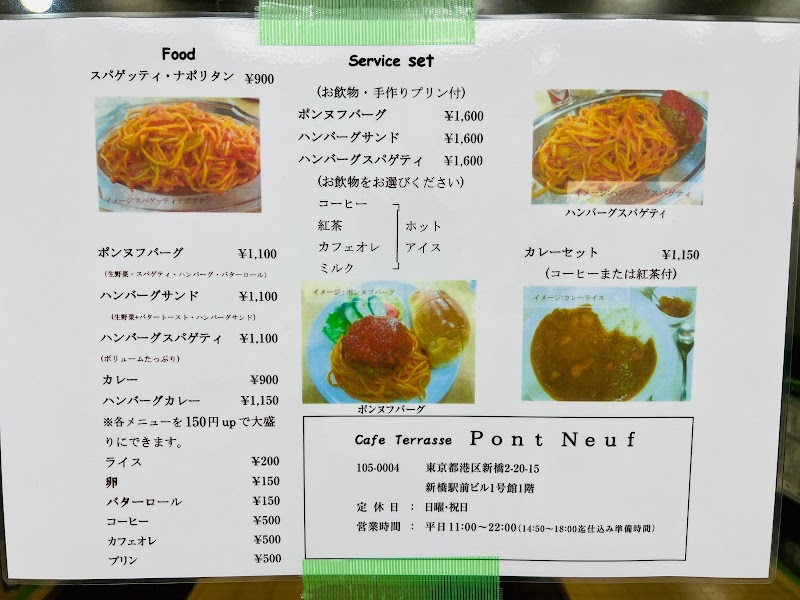 Food
スパゲッティ・ナポリタン ¥900
イメージ:スパゲッティナポリタン
ポンヌフバーグ ¥1,100
(生野菜・スパゲティ・ハンバーグ・バターロール)
ハンバーグサンド ¥1,100
(生野菜+バタートースト・ハンバーグサンド)
ハンバーグスパゲティ ¥1,100
(ボリュームたっぷり)
カレー ¥900
ハンバーグカレー ¥1,150
※各メニューを150円upで大盛
りにできます。
ライス ¥200
卵 ¥150
バターロール ¥150
コーヒー ¥500
カフェオレ ¥500
プリン ¥500
Service set
(お飲物・手作りプリン付)
ポンヌフバーグ ¥1,600
ハンバーグサンド ¥1,600
ハンバーグスパゲティ ¥1,600
(お飲物をお選びください)
コーヒー
紅茶 ホット
カフェオレ アイス
ミルク
イメージ:ポンヌフバーグ
ポンヌフバーグ
イメージ:ハンバーグスパゲティ
ハンバーグスパゲティ
カレーセット ¥1,150
(コーヒーまたは紅茶付)
イメージ:カレーライス
Cafe Terrasse Pont Neuf
105-0004 東京都港区新橋2-20-15
新橋駅前ビル1号館1階
定休日 : 日曜・祝日
営業時間 : 平日11:00～22:00(14:50～18:00迄仕込み準備時間)